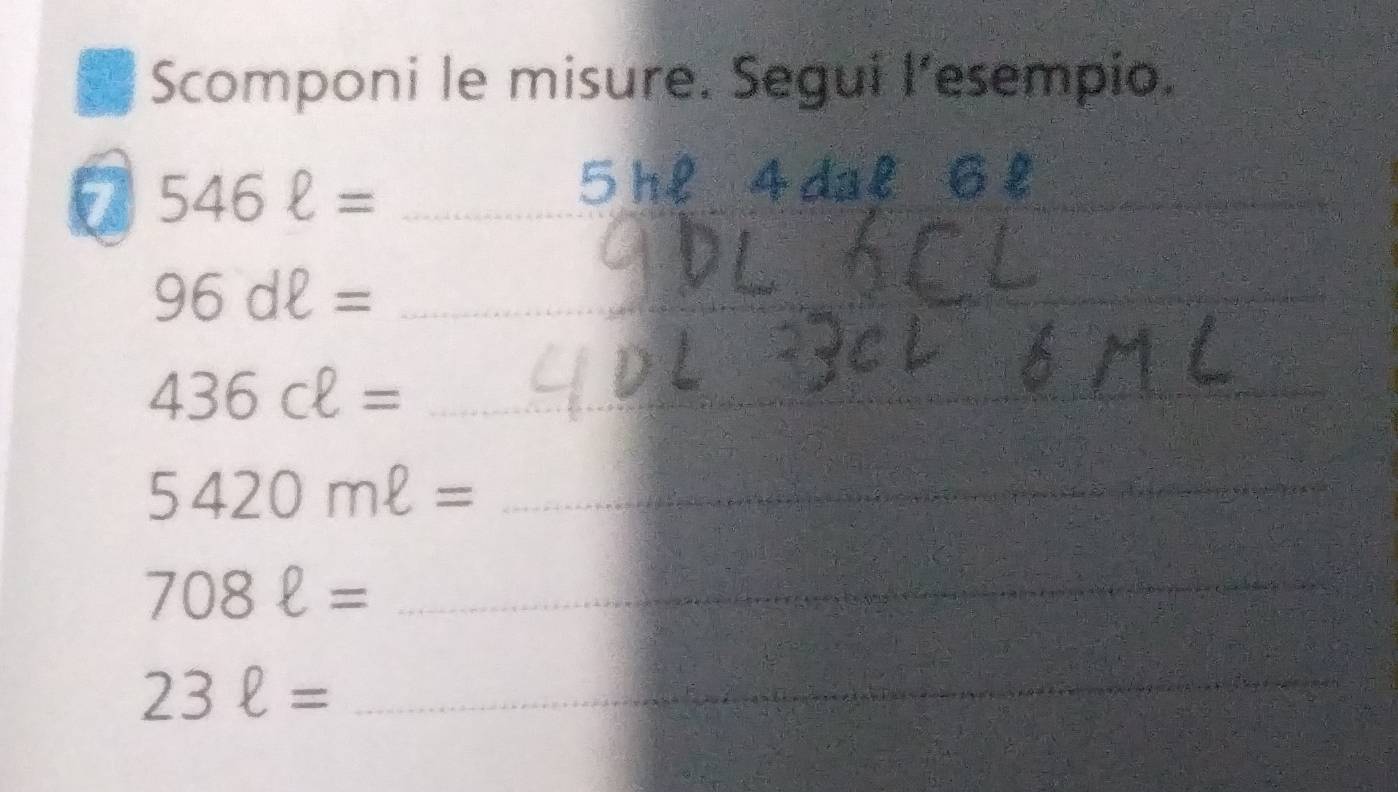 Scomponi le misure. Segui l'esempio.
7 546 ℓ = 5 hℓ 4 daℓ 6 ℓ
96 dℓ = 9 DL 6 CL
436 cℓ = 4 DL 3 CL 6 ML
5 420 mℓ =
708 ℓ =
23 ℓ =